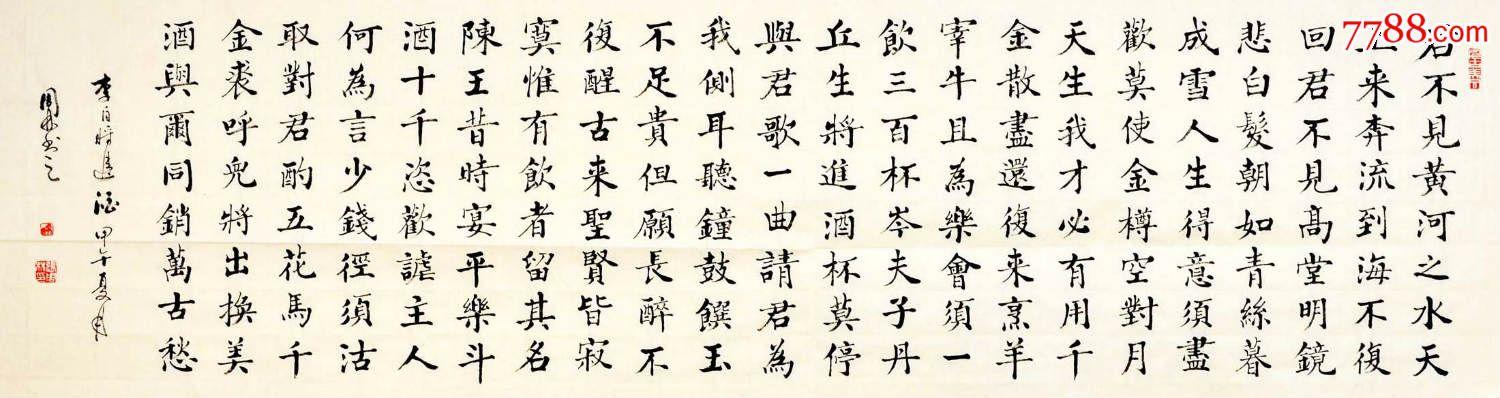 7788.com
君不見黃河之水天
上来奔流到海不復
回君不見髙堂明鏡
悲白髮朝如青絲暮
成雪人生得意須盡
歡莫使金樽空對月
天生我才必有用千
金散盡還復来烹羊
宰牛且為樂會須一
飲三百杯岑夫子丹
丘生將進酒杯莫停
與君歌一曲請君為
我側耳聽鐘鼓饌玉
不足貴但願長醉不
復醒古来聖賢皆寂
寞惟有飲者留其名
陳王昔時宴平樂斗
酒十千恣歡謔主人
何為言少錢徑須沽
取對君酌五花馬千
金裘呼兒將出換美
酒與爾同銷萬古愁
李白將進酒甲午夏月
書之